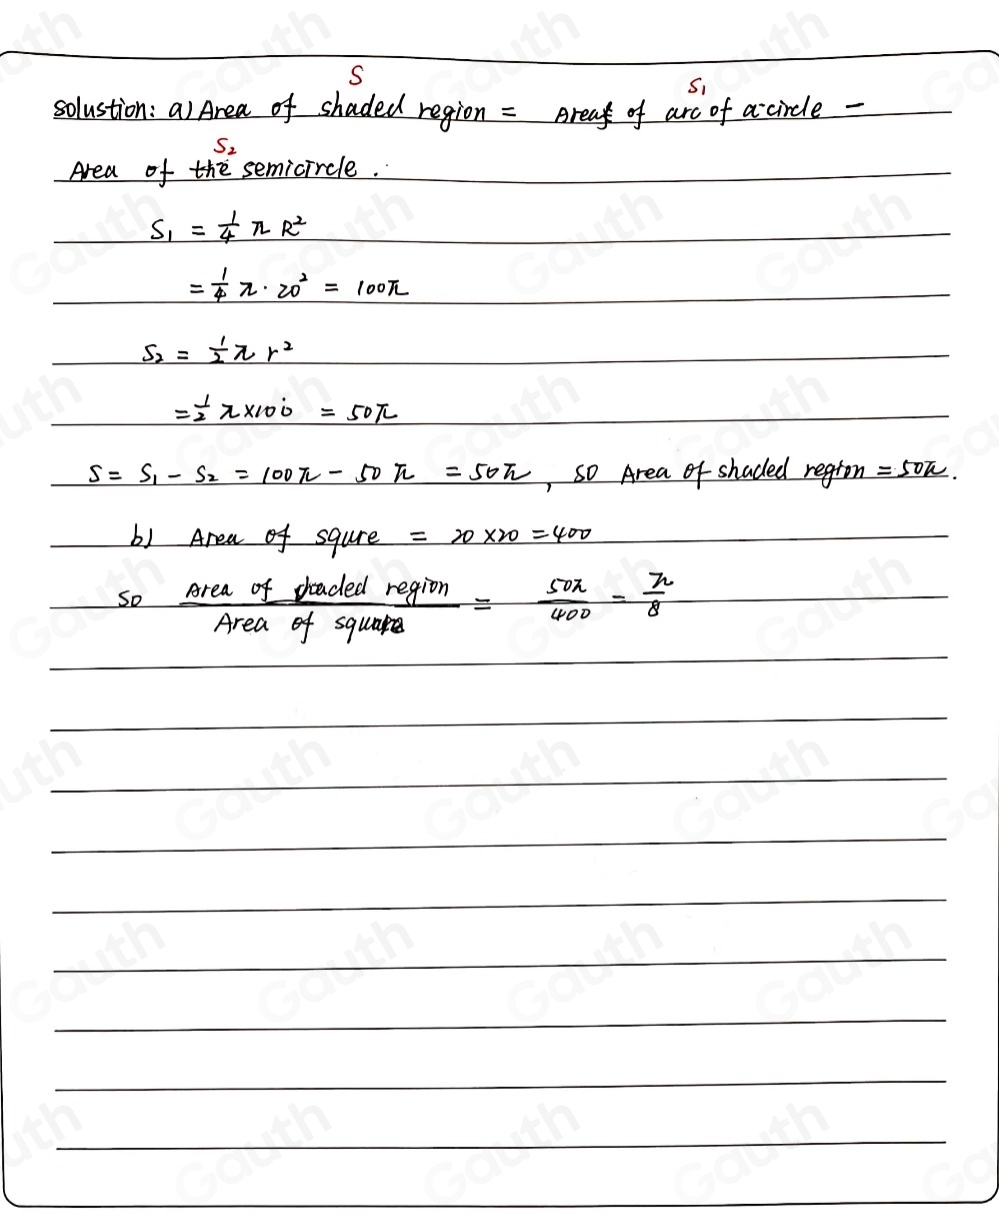 S S₁
solustion: a) Area of shaded region = Area of arc of a circle −
S₂
Area of the semicircle.
S₁ = 1/4 π R²
= 1/4 π · 20² = 100π
S₂ = 1/2 π r²
= 1/2 π×100 = 50π
S = S₁ − S₂ = 100π − 50π = 50π, so Area of shaded region = 50π.
b) Area of squre = 20 × 20 = 400
so Area of shaded region / Area of square = 50π / 400 = π / 8
Gauth